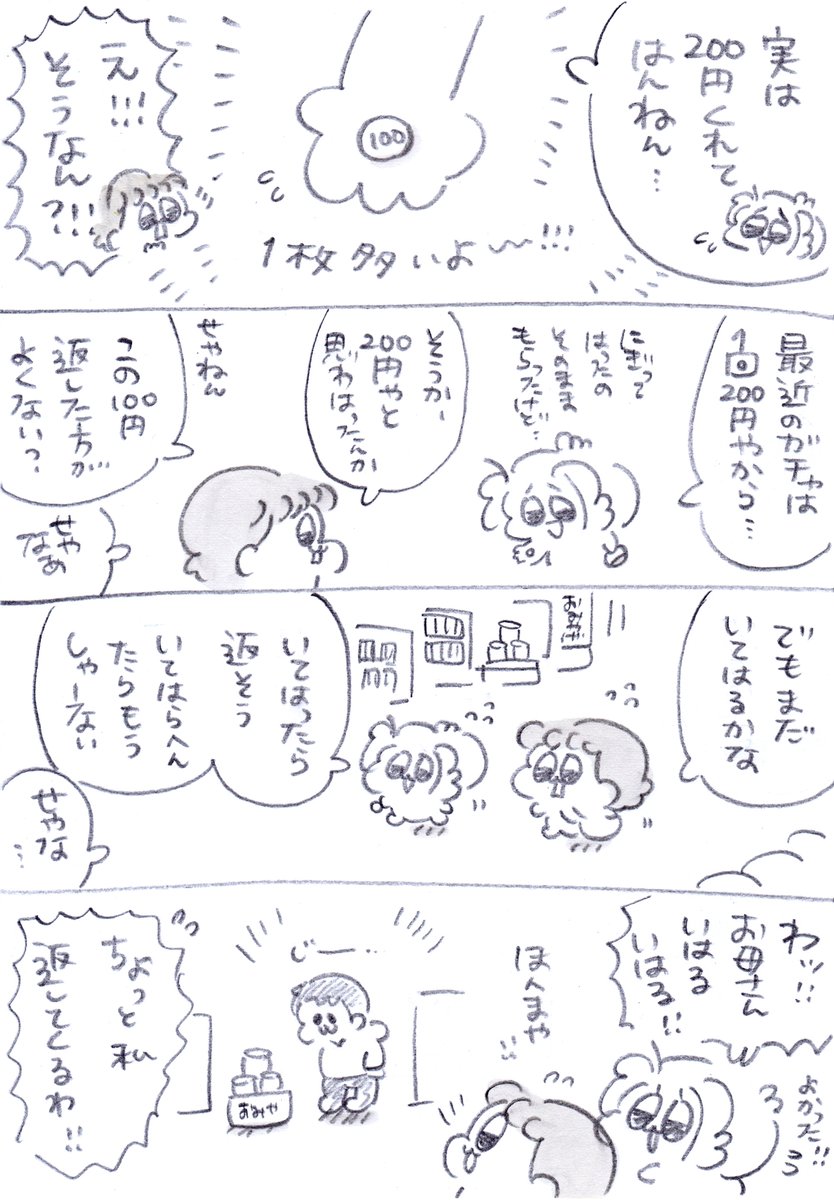 実は
200円くれて
はんねん…
100
1枚多いよ〜!!!
え!!!
そうなん?!!!
最近のガチャは
1回
200円やから…
にぎって
はったの
そのまま
もらったけど…
そうか〜
200円やと
思わはったんか
せやねん
この100円
返した方が
よくない?
せやなあ
でもまだ
いてはるかな
おみやげ
いてはったら
返そう
いてはらへん
たらもう
しゃーない
せやな…
わッ!!
お母さん
いはる
いはる!!
よかった!!
ほんまや!!
じー…
おみや
ちょっと私
返してくるわ!!